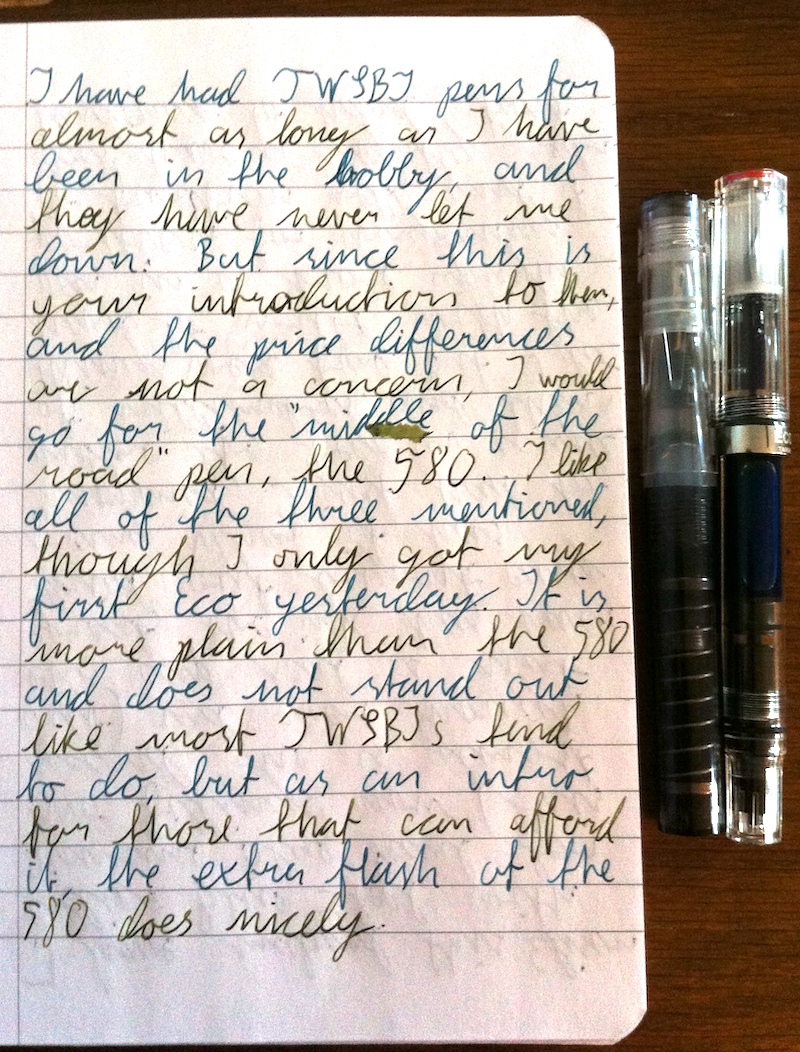 I have had TWSBI pens for
almost as long as I have
been in the hobby, and
they have never let me
down. But since this is
your introduction to them,
and the price differences
are not a concern, I would
go for the "middle of the
road" pen, the 580. I like
all of the three mentioned,
though I only got my
first Eco yesterday. It is
more plain than the 580
and does not stand out
like most TWSBIs tend
to do, but as an intro
for those that can afford
it, the extra flash of the
580 does nicely.